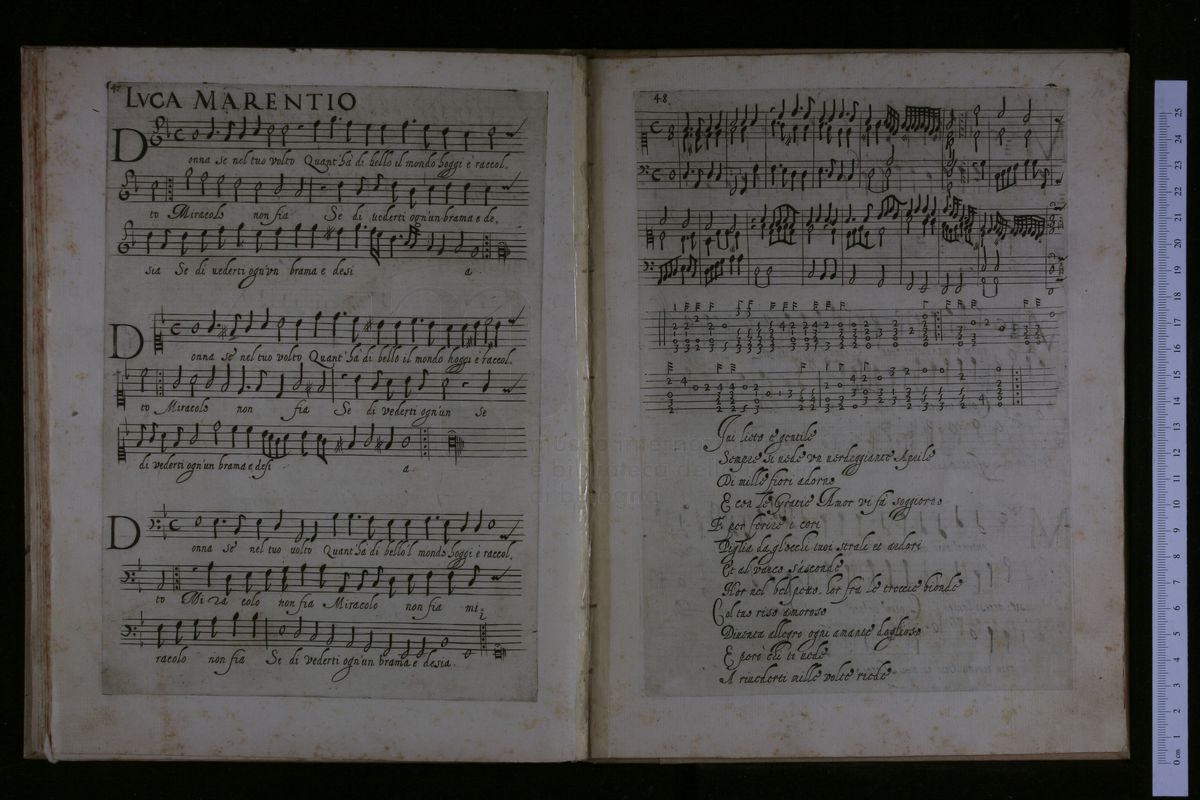 47
LVCA MARENTIO
Donna se nel tuo volto Quant'ha di bello il mondo hoggi è raccol.
to Miracolo non fia Se di vederti ogn'un brama e de.
sia Se di vederti ogn'vn brama e desi a
Donna se nel tuo volto Quant'ha di bello il mondo hoggi è raccol.
to Miracolo non fia Se di vederti ogn'un se
di vederti ogn'un brama e desi a.
Donna se nel tuo volto Quant'ha di bello'l mondo hoggi è raccol.
to Miracolo non fia Miracolo non fia mi
racolo non fia Se di vederti ogn'un brama e desia.
48
Iui lieto e gentile
Sempre si uede vn uerdeggiante Aprile
Di mille fiori adorno
E con le Gratie Amor vi fa soggiorno
E per ferire i cori
Piglia da gl'occhi tuoi strale et ardori
Et al varco s'asconde
Hor nel bel petto, hor fra le treccie bionde
Col tuo riso amoroso
Diuenta allegro ogni amante doglioso
E però chi ti uede
A riuederti mille volte riede
museo internazionale
e biblioteca della
di bologna